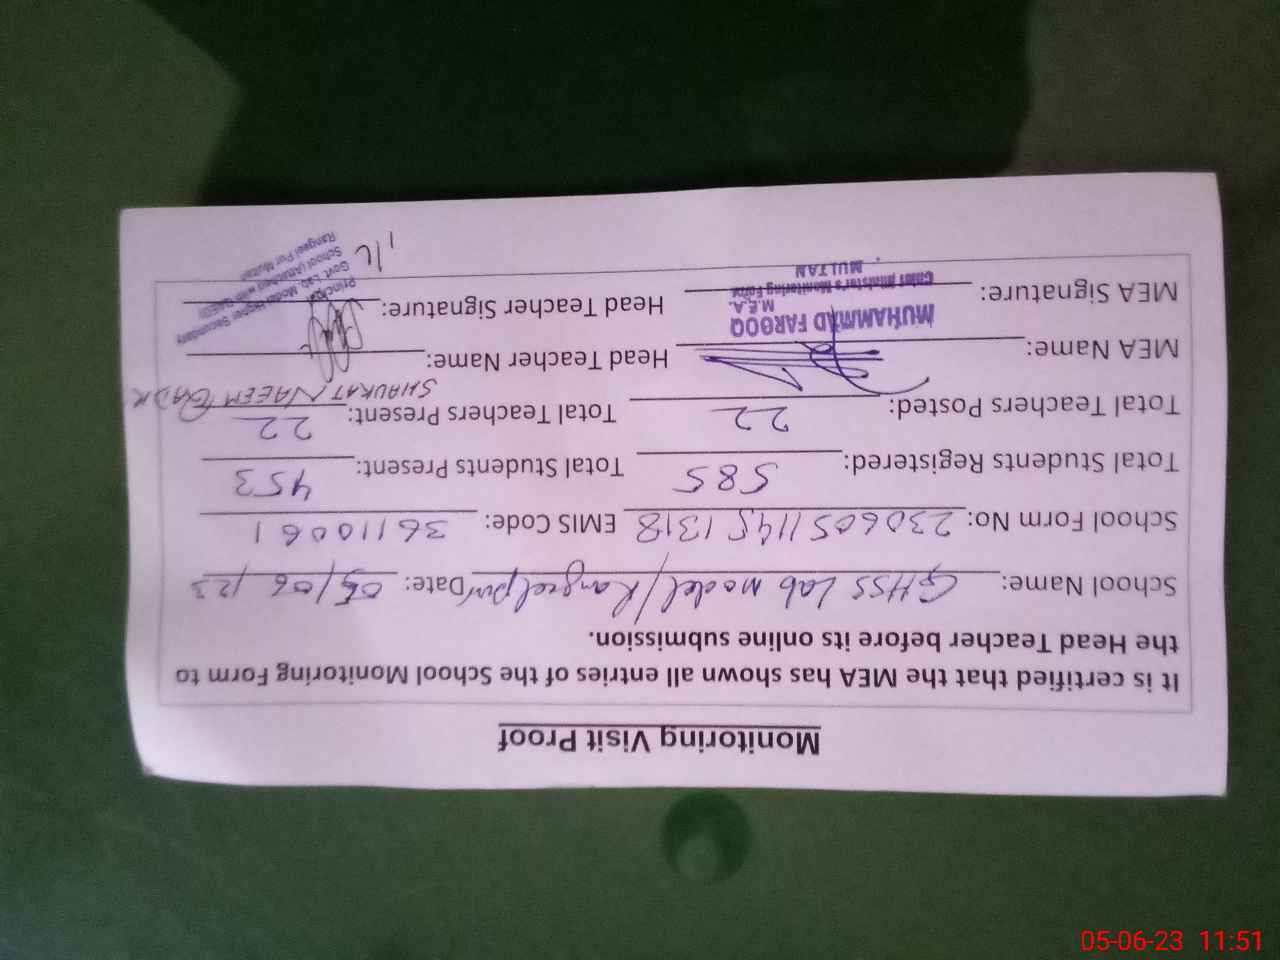 Monitoring Visit Proof
It is certified that the MEA has shown all entries of the School Monitoring Form to
the Head Teacher before its online submission.
School Name: GHSS Lab model/Rangeelpur Date: 05/06/23
School Form No: 2306051145 1318 EMIS Code: 36110061
Total Students Registered: 585 Total Students Present: 453
Total Teachers Posted: 22 Total Teachers Present: 22
SHAUKAT NAEEM QADR
MEA Name: Head Teacher Name:
MUHAMMAD FAROOQ
M.E.A.
Chief Minister's Monitoring Force
MULTAN
MEA Signature: Head Teacher Signature:
Principal
Govt. Lab. Model Higher Secondary
School (Attached with
Rangeel Pur Multan
05-06-23 11:51